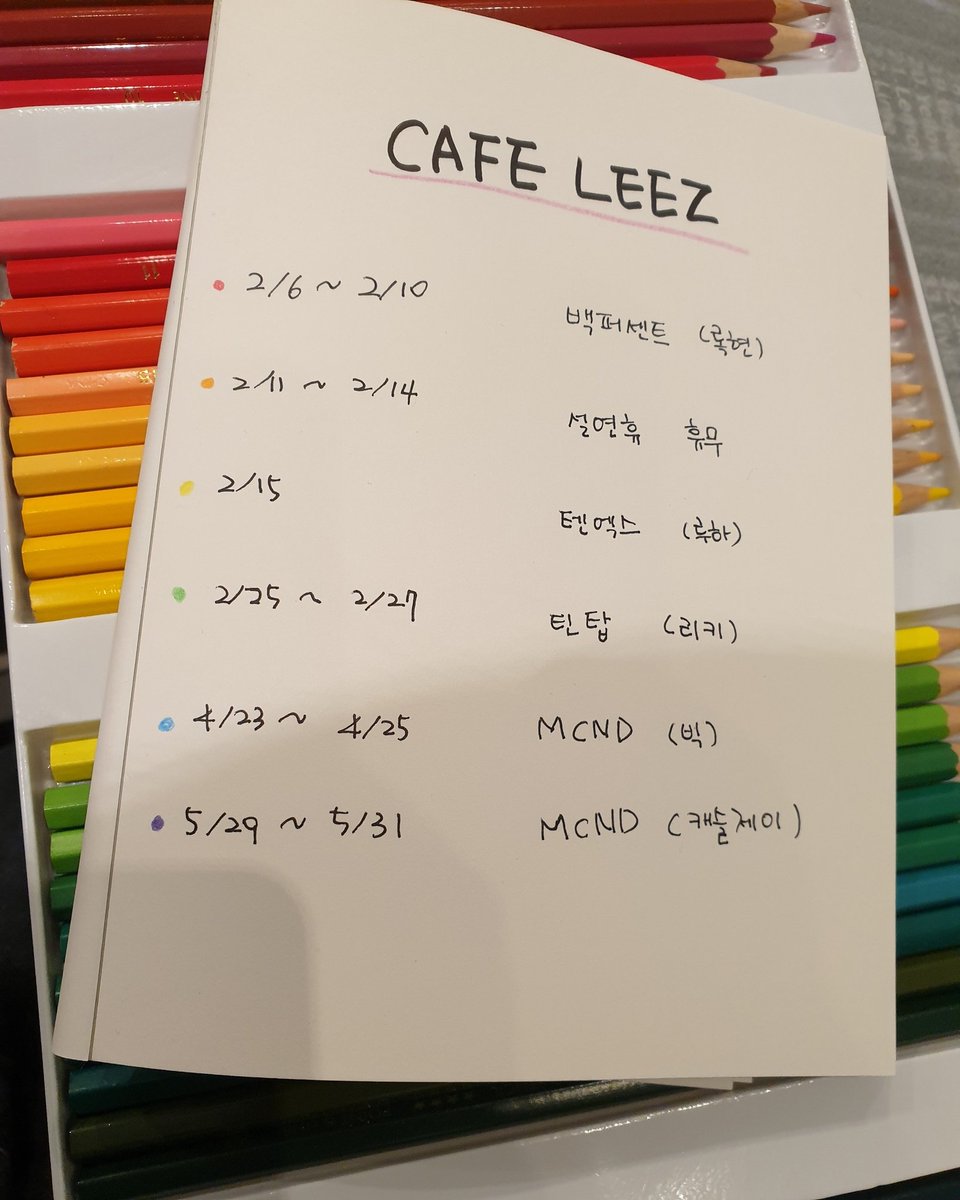 CAFE LEEZ
2/6 ~ 2/10 백퍼센트 (록현)
2/11 ~ 2/14 설연휴 휴무
2/15 텐엑스 (루하)
2/25 ~ 2/27 틴탑 (리키)
4/23 ~ 4/25 MCND (빅)
5/29 ~ 5/31 MCND (캐슬제이)